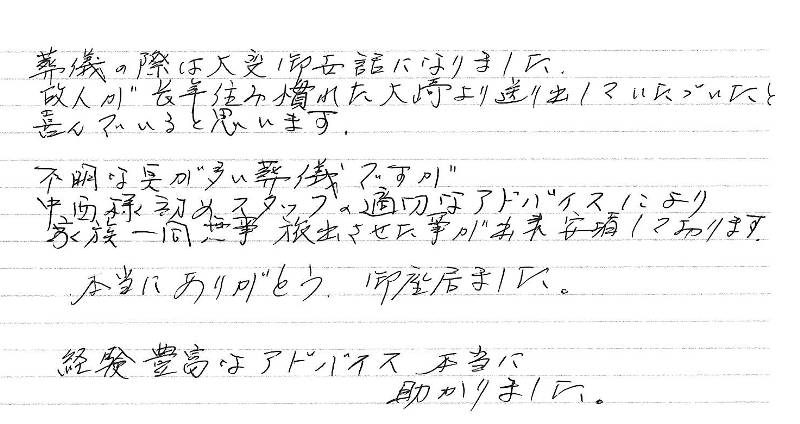 葬儀の際は大変御世話になりました.
故人が長年住み慣れた大崎より送り出していただいたと
喜んでいると思います.
不明な点が多い葬儀ですが
中西様初めスタッフの適切なアドバイスにより
家族一同無事 旅出させた事が出来安堵しております.
本当にありがとう. 御座居ました。
経験豊富なアドバイス 本当に
助かりました。